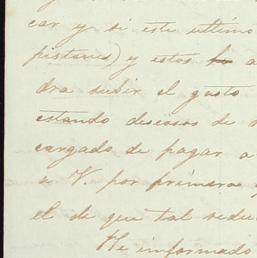 car y si este ultimo
pistares) y estos a
dra subir el gusto
estando deseosos de
cargado de pagar a
a V. por primera
el de que tal redu
He informado